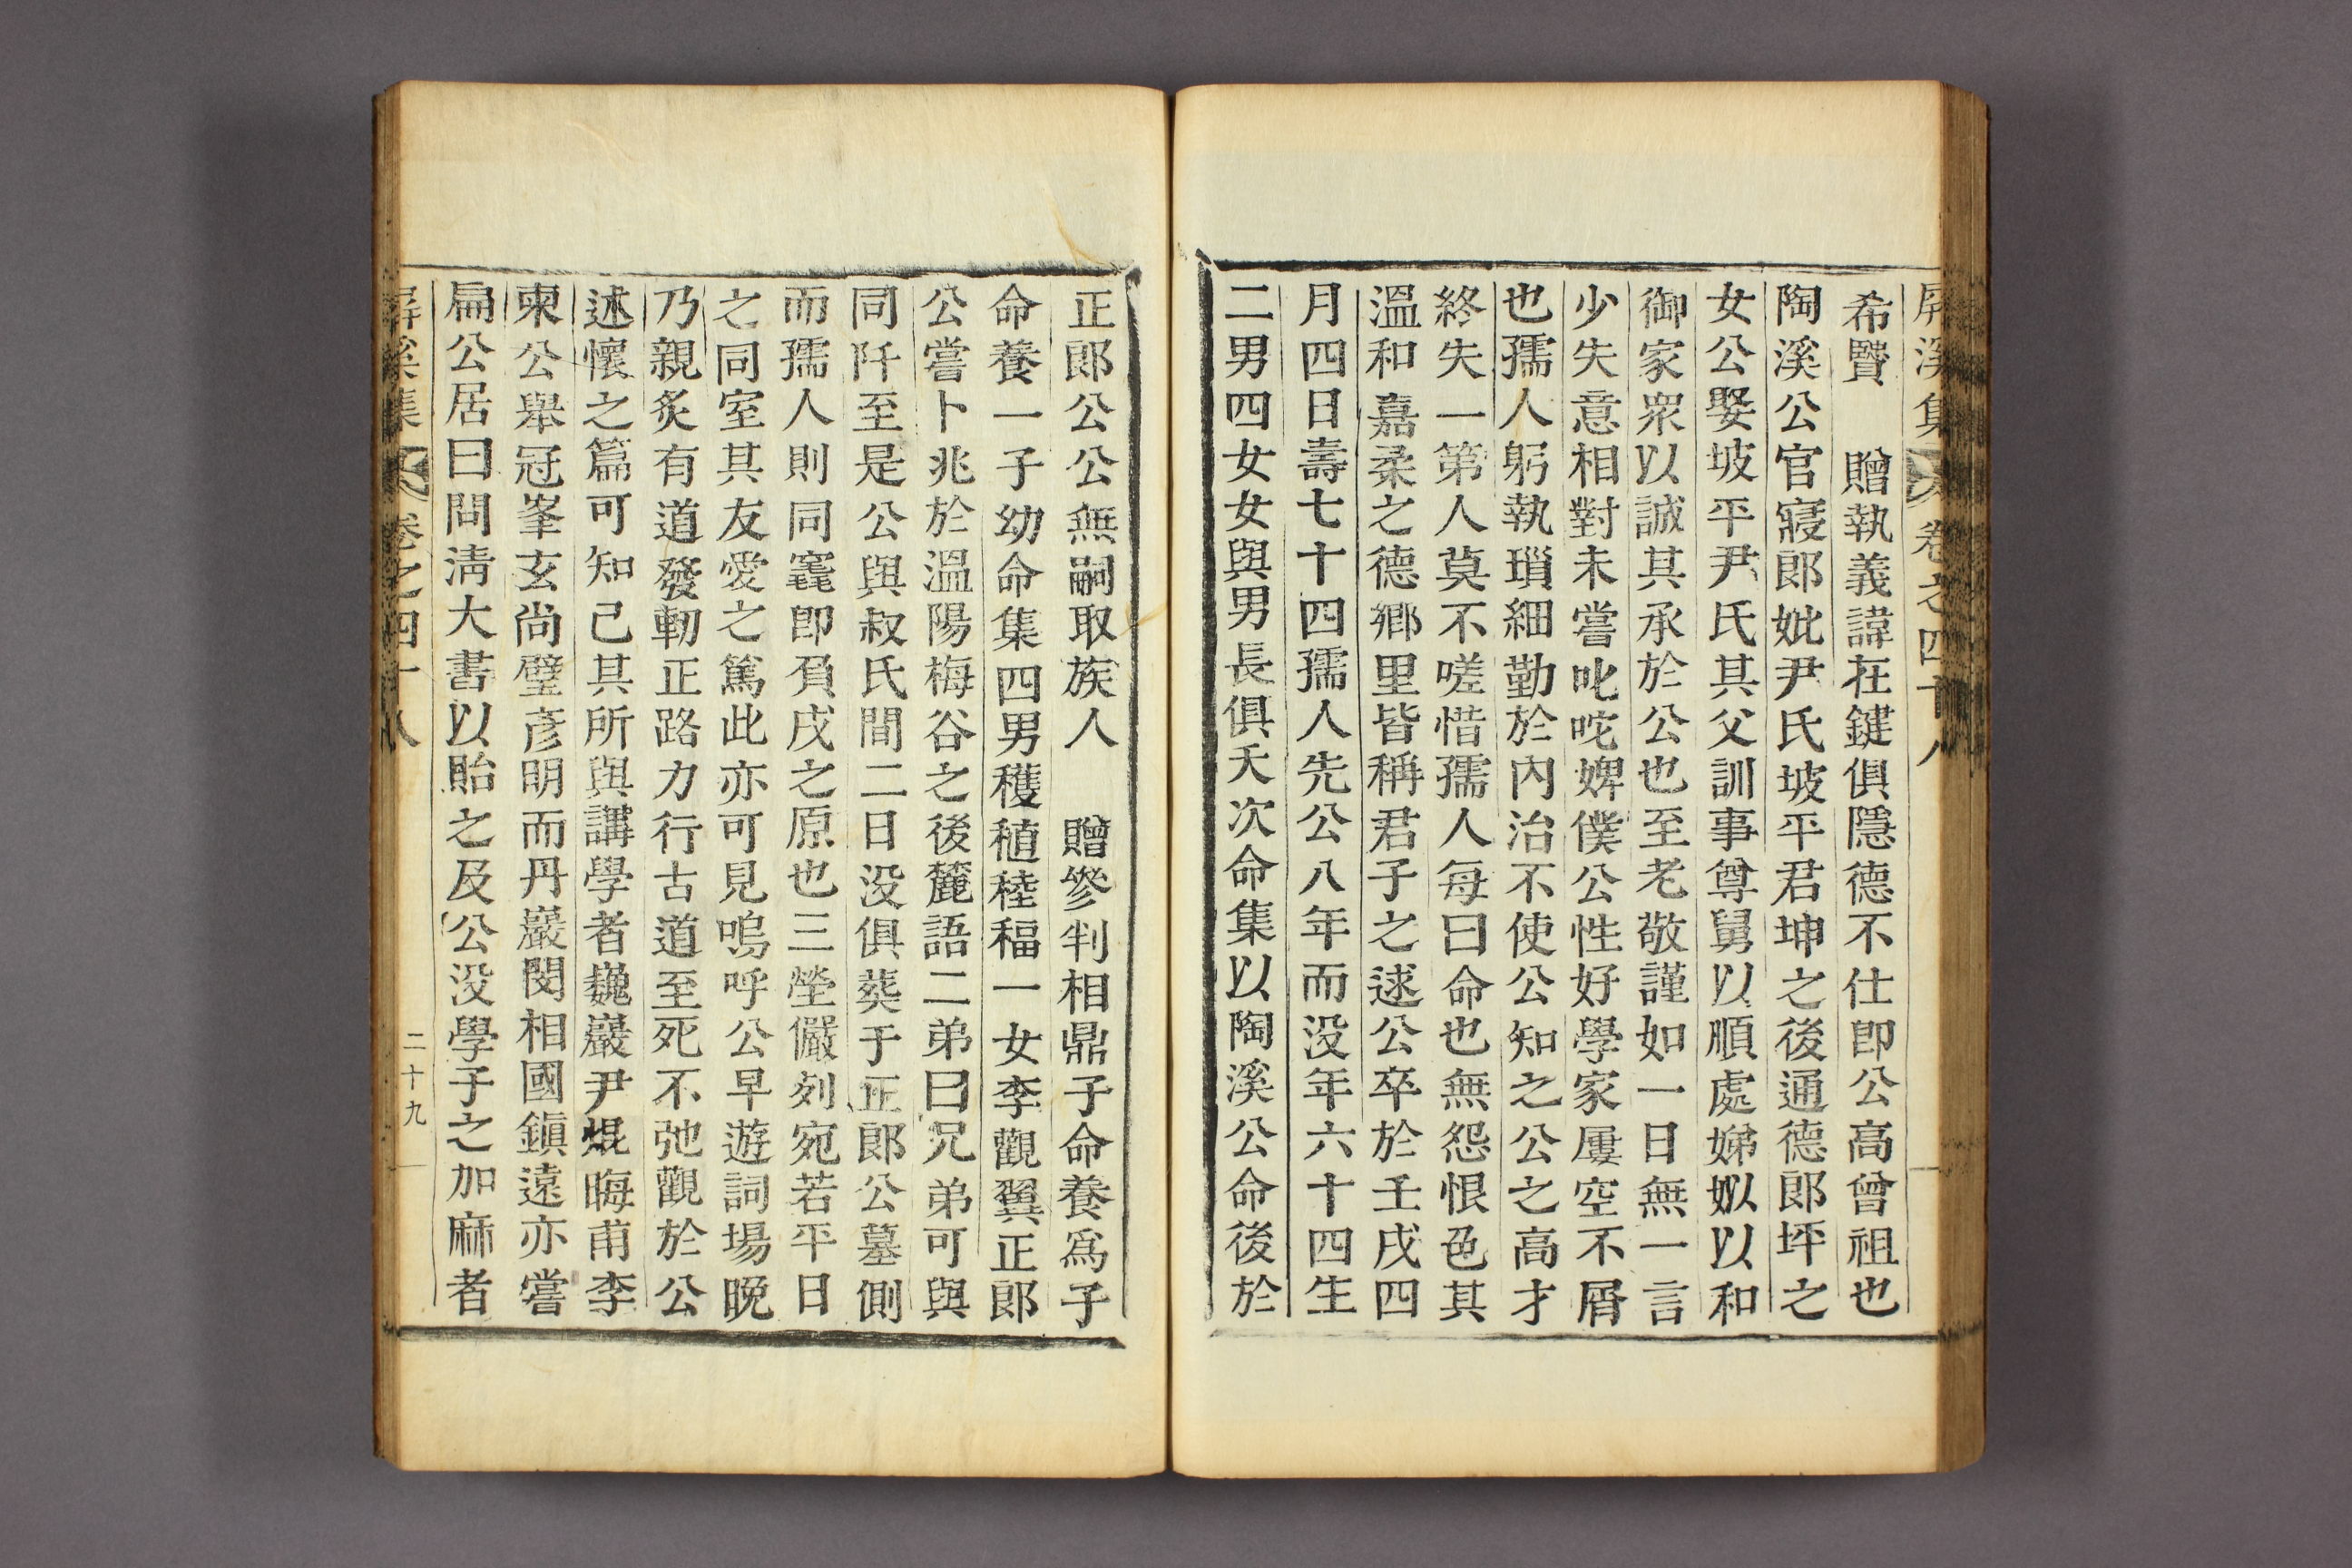 屛溪集 卷之四十八
希賢 贈執義諱在鍵俱隱德不仕卽公高曾祖也
陶溪公官寢郞妣尹氏坡平君坤之後通德郞坪之
女公娶坡平尹氏其父訓事尊舅以順處娣姒以和
御家衆以誠其承於公也至老敬謹如一日無一言
少失意相對未嘗叱咤婢僕公性好學家屢空不屑
也孺人躬執瑣細勤於內治不使公知之公之高才
終失一第人莫不嗟惜孺人每曰命也無怨恨色其
溫和嘉柔之德鄕里皆稱君子之逑公卒於壬戌四
月四日壽七十四孺人先公八年而没年六十四生
二男四女女與男長俱夭次命集以陶溪公命後於
正郞公公無嗣取族人 贈參判相鼎子命養爲子
命養一子幼命集四男穫稙稑稫一女李觀翼正郞
公嘗卜兆於溫陽梅谷之後麓語二弟曰兄弟可與
同阡至是公與叔氏間二日没俱葬于正郞公墓側
而孺人則同竁卽負戌之原也三塋儼列宛若平日
之同室其友愛之篤此亦可見嗚呼公早遊詞場晩
乃親炙有道發軔正路力行古道至死不弛觀於公
述懷之篇可知己其所與講學者巍巖尹焜晦甫李
柬公舉冠峯玄尙璧彥明而丹巖閔相國鎭遠亦嘗
扁公居曰問淸大書以貽之及公没學子之加麻者
屛溪集 卷之四十八
二十九